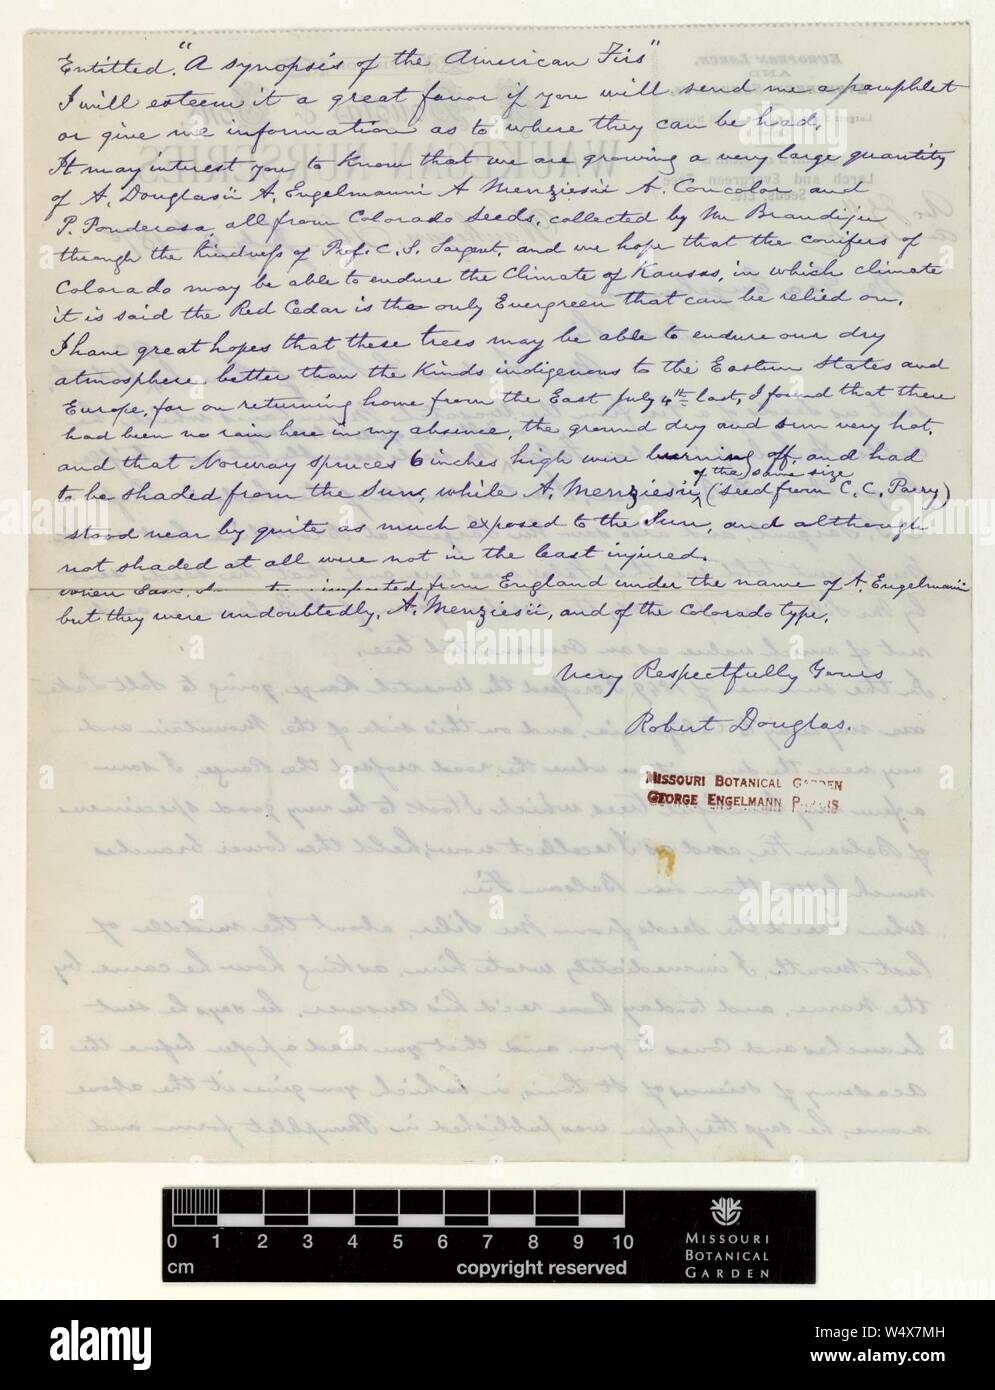 Entitled. "A synopsis of the American Firs"
I will esteem it a great favor if you will send me a pamphlet
or give me information as to where they can be had.
It may interest you to know that we are growing a very large quantity
of A. Douglasii A. Engelmanni A Menziesii A. Concolor and
P. Ponderosa, all from Colorado seeds, collected by Mr
through the kindness of Prof. C. S. Sargent, and we hope that the conifers of
Colorado may be able to endure the Climate of Kansas, in which climate
it is said the Red Cedar is the only Evergreen that can be relied on.
I have great hopes that these trees may be able to endure our dry
atmosphere better than the kinds indigenous to the Eastern States and
Europe, for on returning home from the East July 4th last, I found that there
had been no rain here in my absence, the ground dry and sun very hot,
and that Norway spruces 6 inches high were burning off, and had
to be shaded from the Sun, while A. Menziesii of the same size (seed from C. C. Parry)
stood near by quite as much exposed to the Sun, and although
not shaded at all were not in the least injured.
When East, imported from England under the name of A. Engelmanii
but they were undoubtedly, A. Menziesii, and of the Colorado type.
Very Respectfully Yours
Robert Douglas.
MISSOURI BOTANICAL GARDEN
GEORGE ENGELMANN PAPERS
0 1 2 3 4 5 6 7 8 9 10
cm copyright reserved
MISSOURI
BOTANICAL
GARDEN
alamy
Image ID: W4X7MH
www.alamy.com